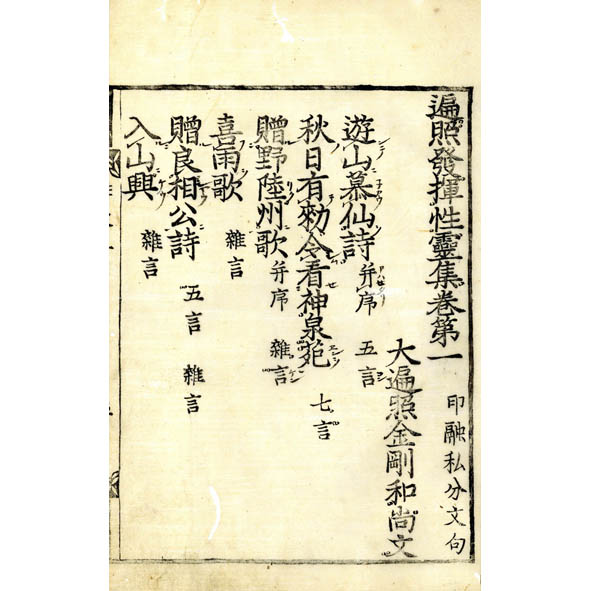 遍照發揮性靈集卷第一 印融私分文句
大遍照金剛和尚文
遊山慕仙詩 并序 五言
秋日有勅令看神泉苑 七言
贈野陸州歌 并序 雜言
喜雨歌 雜言
贈良相公詩 五言 雜言
入山興 雜言